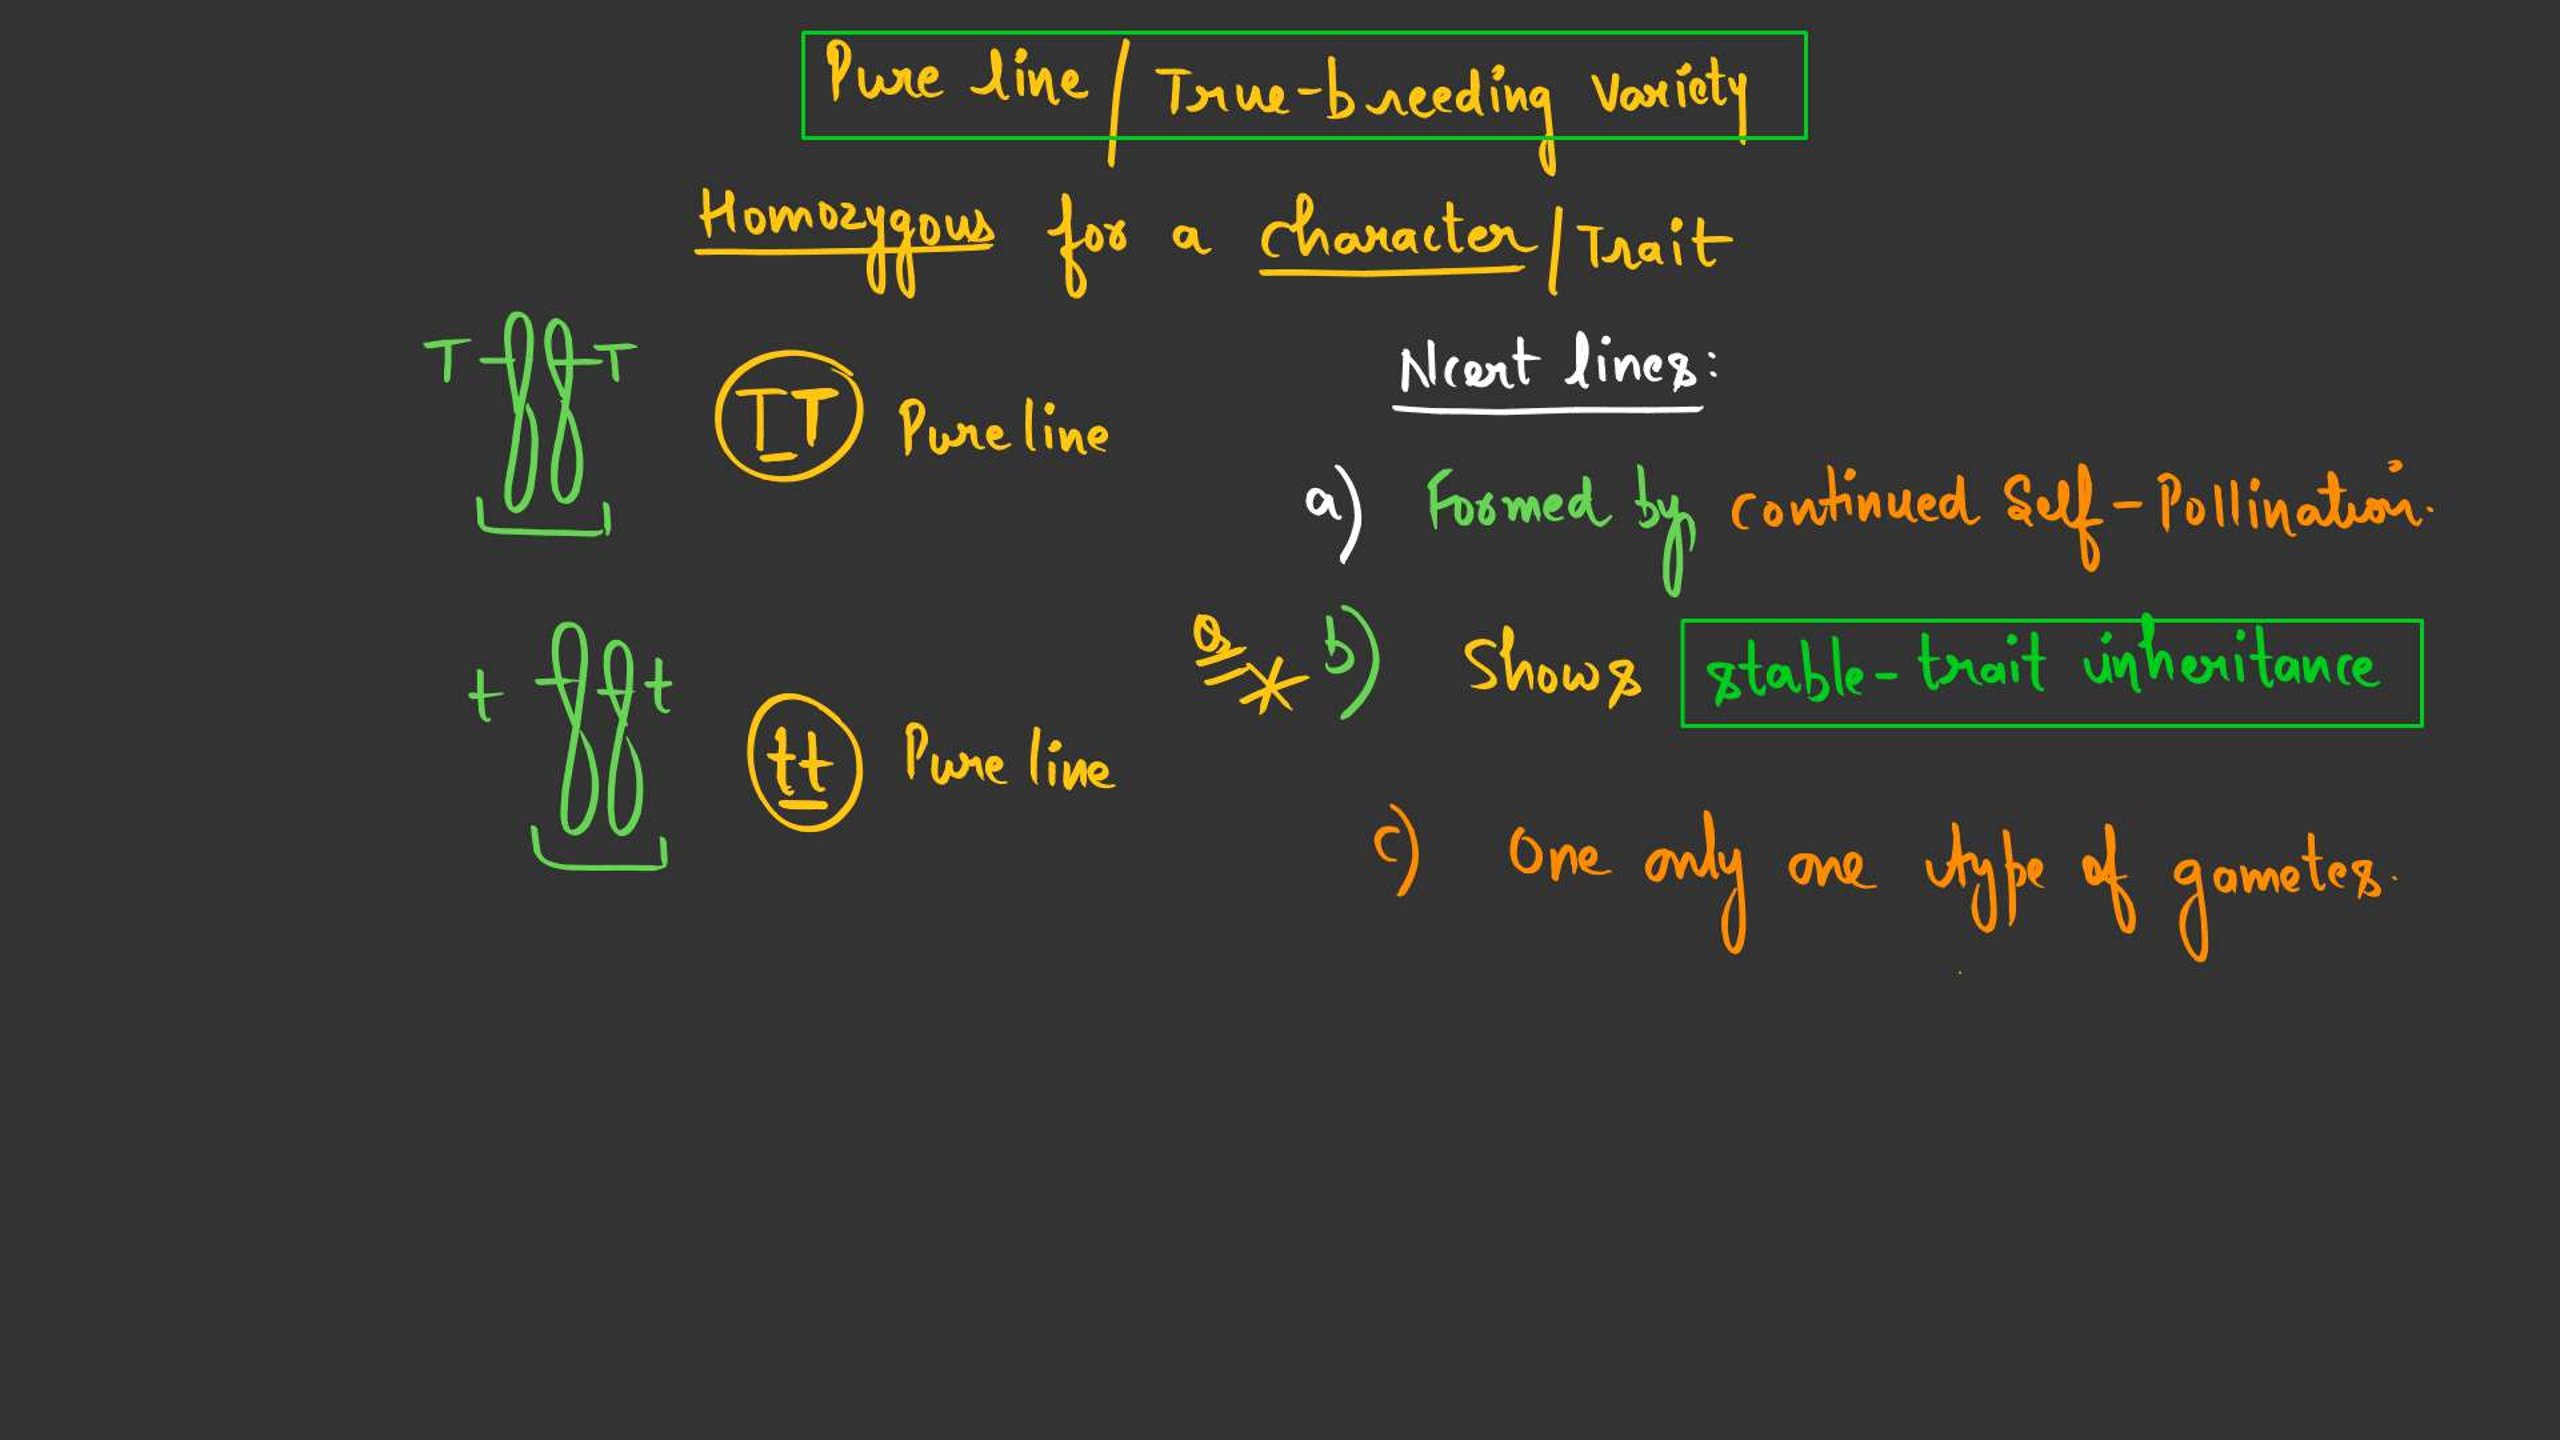 Pure line / True-breeding Variety
Homozygous for a character / Trait
T T
TT Pure line
t t
tt Pure line
Ncert lines:
a) Formed by continued Self-Pollination.
Q * b) Shows stable-trait inheritance
c) One only one type of gametes.